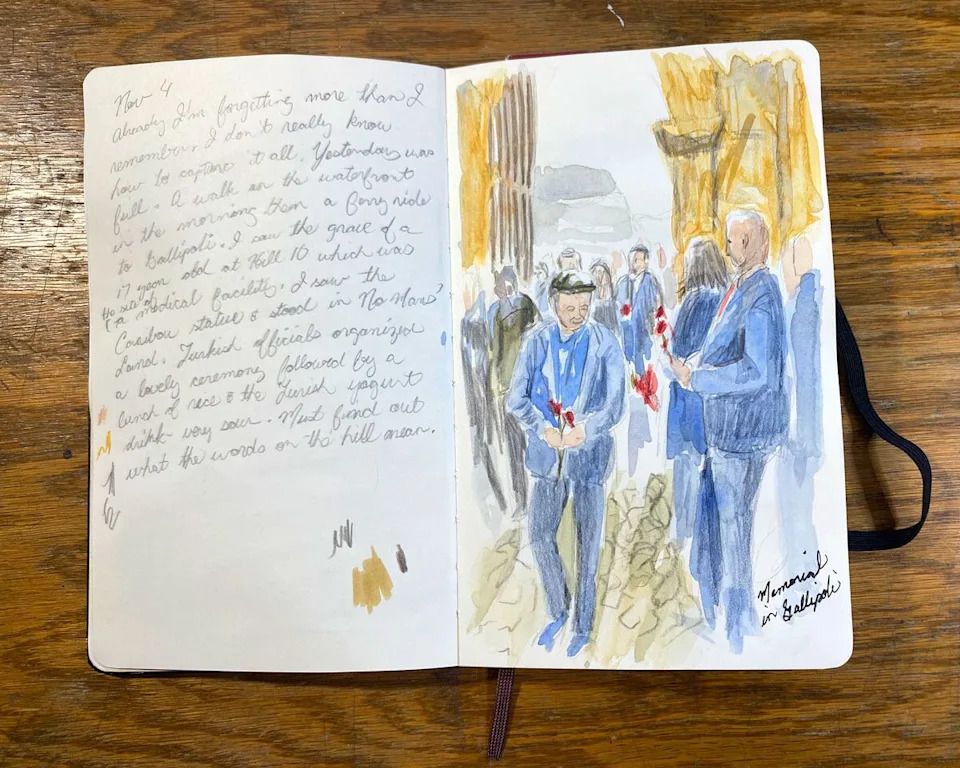 Nov 4
Already I'm forgetting more than I
remember. I don't really know
how to capture it all. Yesterday was
full. A walk on the waterfront
in the morning then a ferry ride
to Gallipoli. I saw the grave of a
17 year old at Hill 10 which was
(the site of a medical facility). I saw the
Caribou statue & stood in No Mans'
Land. Turkish officials organized
a lovely ceremony followed by a
lunch of rice & the Turish yogurt
drink - very sour. Must find out
what the words on the hill mean.
Memorial
in Gallipoli